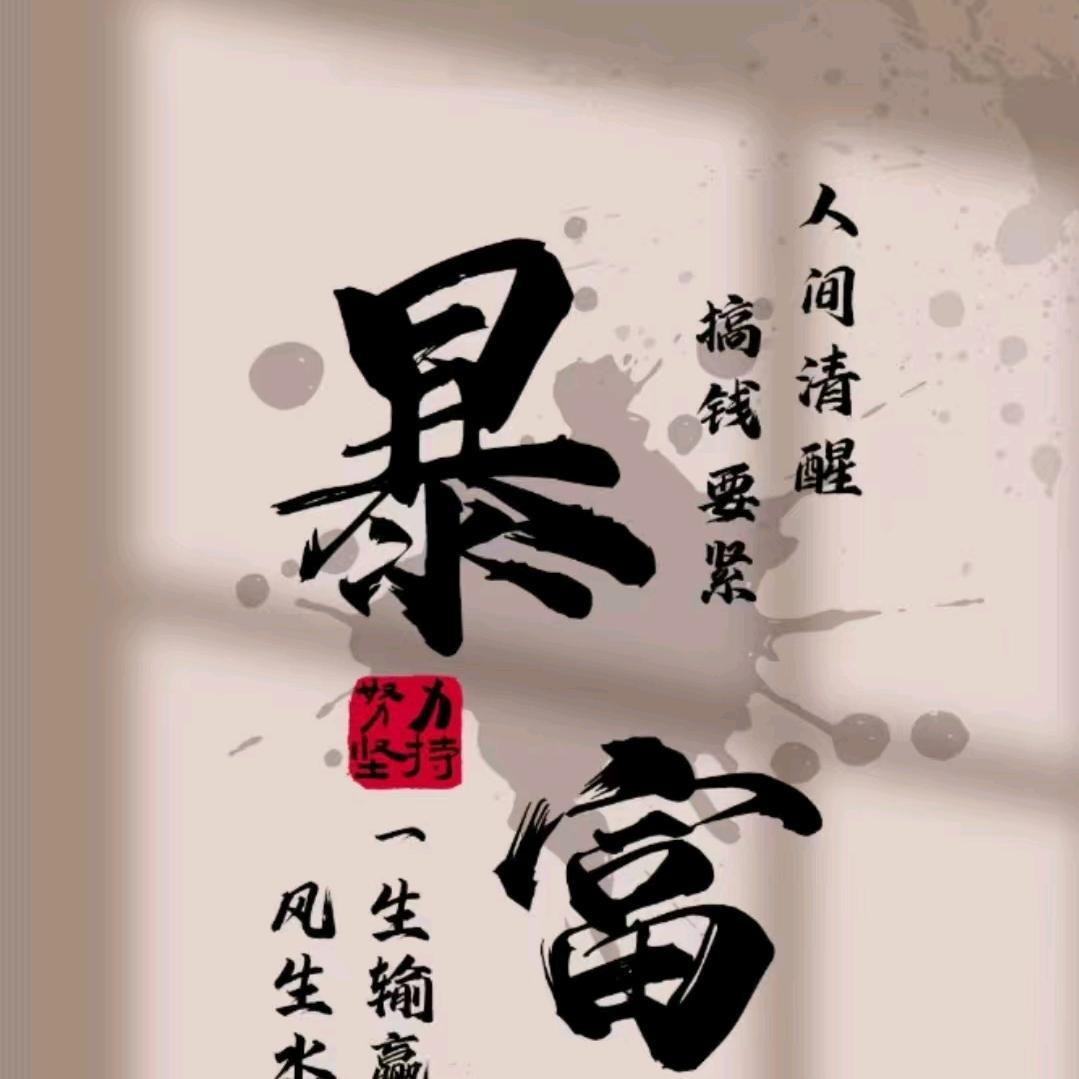 人间清醒
搞钱要紧
暴富
努力
坚持
一生输赢
风生水